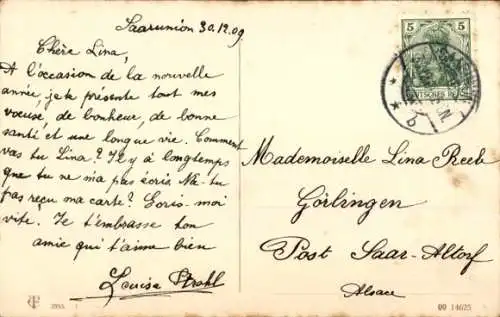 Saarunion 30.12.09
Chère Lina,
A l'occasion de la nouvelle
année, je te présente tout mes
voeuse, de bonheur, de bonne
santé et une longue vie. Comment
vas tu Lina? Il y à longtemps
que tu ne m'a pas écris Na-tu
pas reçu ma carte? Ecris-moi
vite. Je t'embrasse ton
amie qui t'aime bien
Louise Strohl
5 5
DEUTSCHES REICH
Mademoiselle Lina Reeb
Görlingen
Post Saar-Altorf
Alsace
09 14625